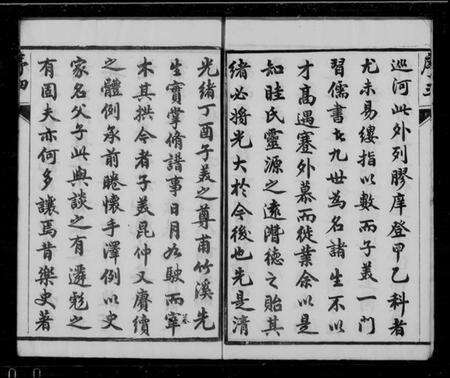 巡河此外列膠庠登甲乙科者
尤未易縷指以數而子美一門
習儒書者九世為名諸生不以
才高遇蹇外慕而徙業余以是
知眭氏靈源之遠潛德之貽其
緒必將光大於今後也先是清
光緒丁酉子美之尊甫竹溪先
生實掌脩譜事日月如駛而宰
木其拱今者子美昆仲又賡續
之體例承前睠懷手澤例以史
家名父子此與談之有遷彪之
有固夫亦何多讓焉昔樂史著
序四